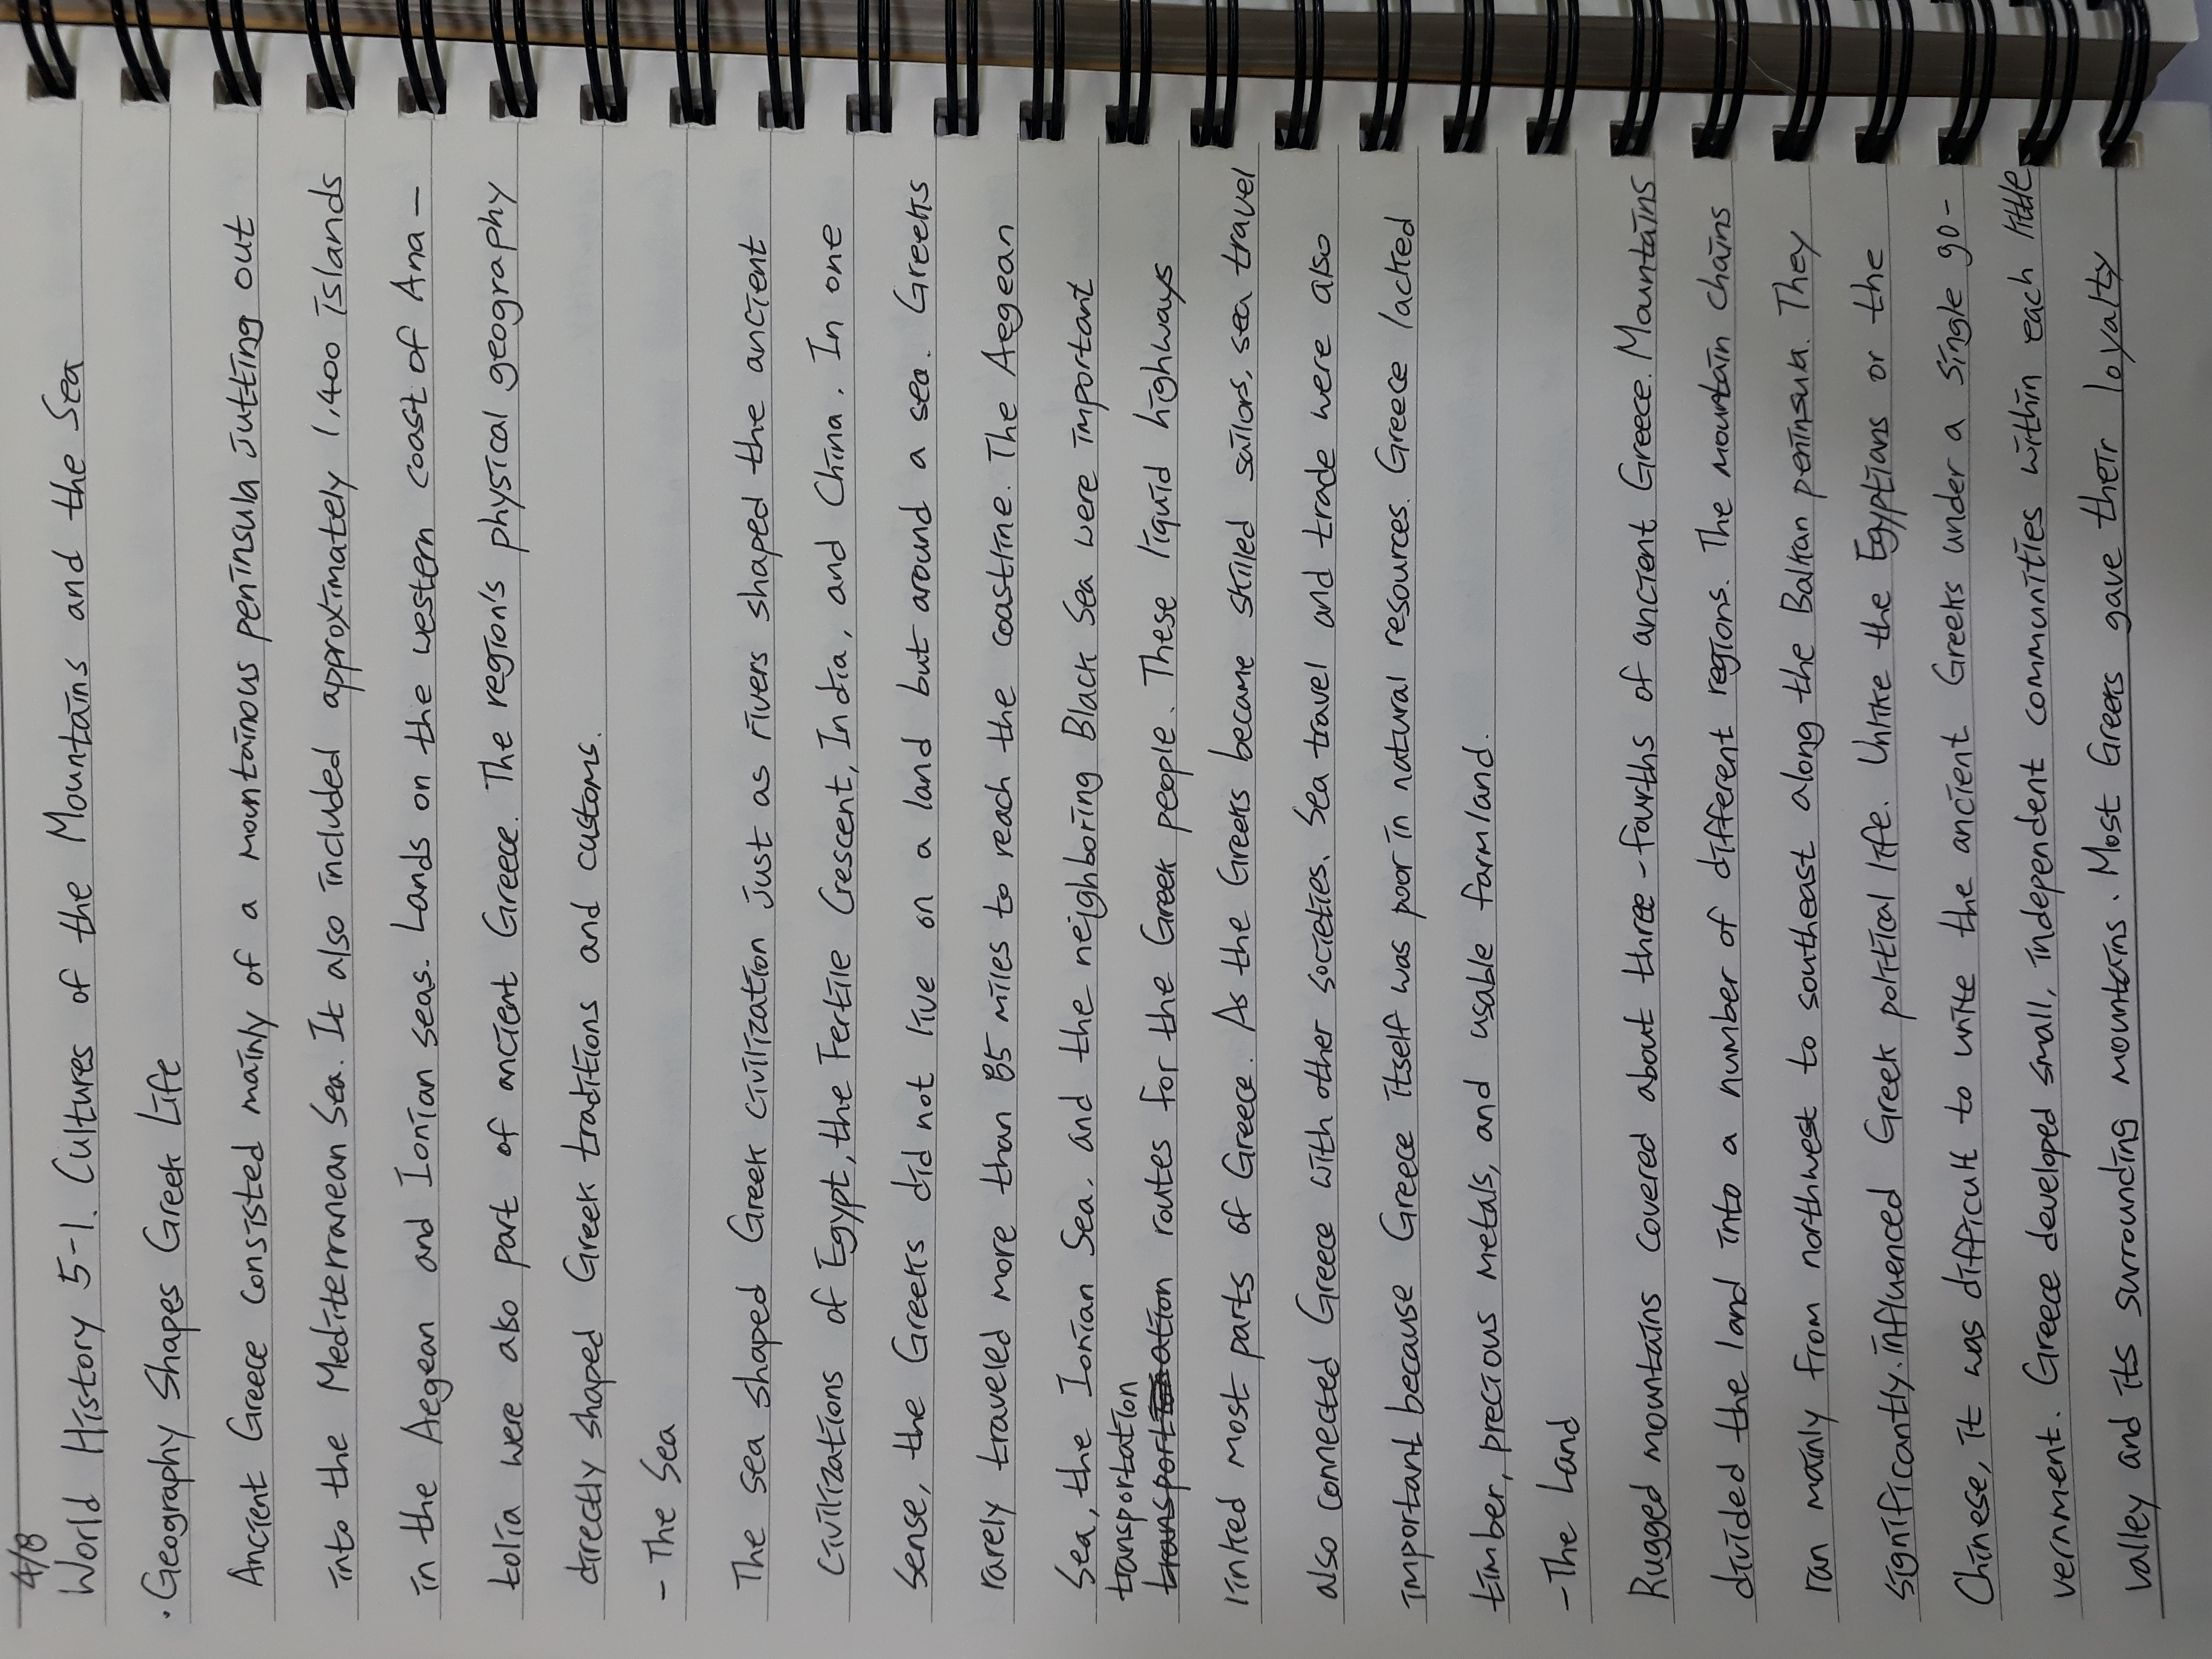 4/8
World History 5-1. Cultures of the Mountains and the Sea
·Geography Shapes Greek Life
Ancient Greece consisted mainly of a mountainous peninsula jutting out
into the Mediterranean Sea. It also included approximately 1,400 islands
in the Aegean and Ionian seas. Lands on the western coast of Ana-
tolia were also part of ancient Greece. The region's physical geography
directly shaped Greek traditions and customs.
- The Sea
The sea shaped Greek civilization just as rivers shaped the ancient
civilizations of Egypt, the Fertile Crescent, India, and China. In one
sense, the Greeks did not live on a land but around a sea. Greeks
rarely travelled more than 85 miles to reach the coastline. The Aegean
Sea, the Ionian Sea, and the neighboring Black Sea were important
transportation routes for the Greek people. These liquid highways
linked most parts of Greece. As the Greeks became skilled sailors, sea travel
also connected Greece with other societies. Sea travel and trade were also
important because Greece itself was poor in natural resources. Greece lacked
timber, precious metals, and usable farmland.
- The Land
Rugged mountains covered about three-fourths of ancient Greece. Mountains
divided the land into a number of different regions. The mountain chains
ran mainly from northwest to southeast along the Balkan peninsula. They
significantly influenced Greek political life. Unlike the Egyptians or the
Chinese, it was difficult to unite the ancient Greeks under a single go-
vernment. Greece developed small, independent communities within each little
valley and its surrounding mountains. Most Greeks gave their loyalty